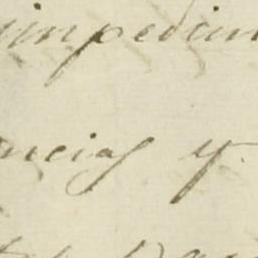 impedim
ncias y